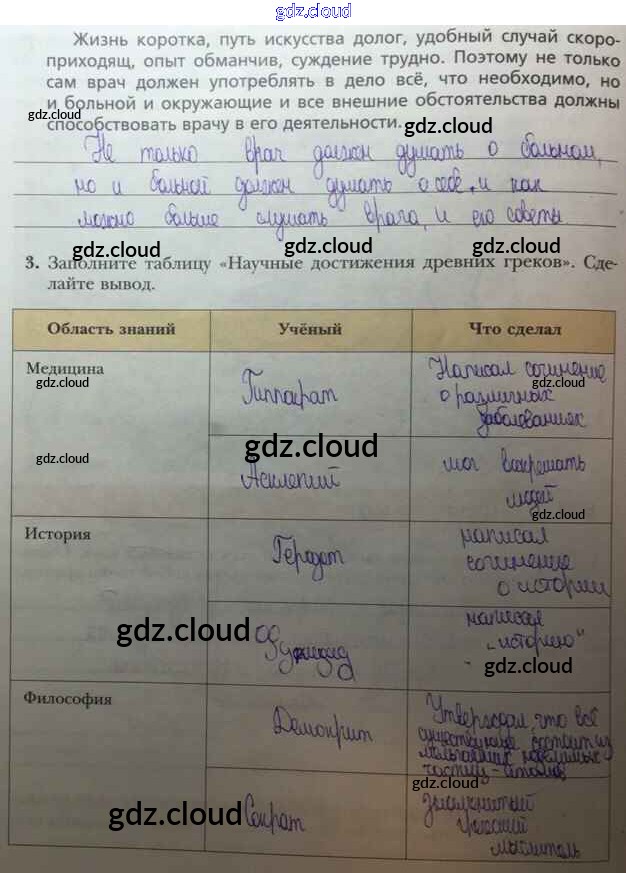 gdz.cloud
Жизнь коротка, путь искусства долог, удобный случай скоро-
преходящ, опыт обманчив, суждение трудно. Поэтому не только
сам врач должен употреблять в дело всё, что необходимо, но
и больной и окружающие и все внешние обстоятельства должны
способствовать врачу в его деятельности.
gdz.cloud
gdz.cloud
Не только врач должен думать о больном,
но и больной должен думать о себе, и как
можно больше слушать врача, и его советы
gdz.cloud
gdz.cloud
3. Заполните таблицу «Научные достижения древних греков». Сде-
лайте вывод.
Область знаний Учёный Что сделал
Медицина
gdz.cloud
Гиппократ
Написал сочинение
о различных
заболеваниях
gdz.cloud
gdz.cloud
gdz.cloud
Асклепий
мог воскрешать
людей
gdz.cloud
История
Геродот
написал
сочинение
о истории
gdz.cloud
Фукидид
написал
„историю“
gdz.cloud
Философия
Демокрит
Утверждал, что всё
существующее состоит из
мельчайших неделимых
частиц - атомов
gdz.cloud
gdz.cloud
Сократ
знаменитый
греческий
мыслитель
gdz.cloud